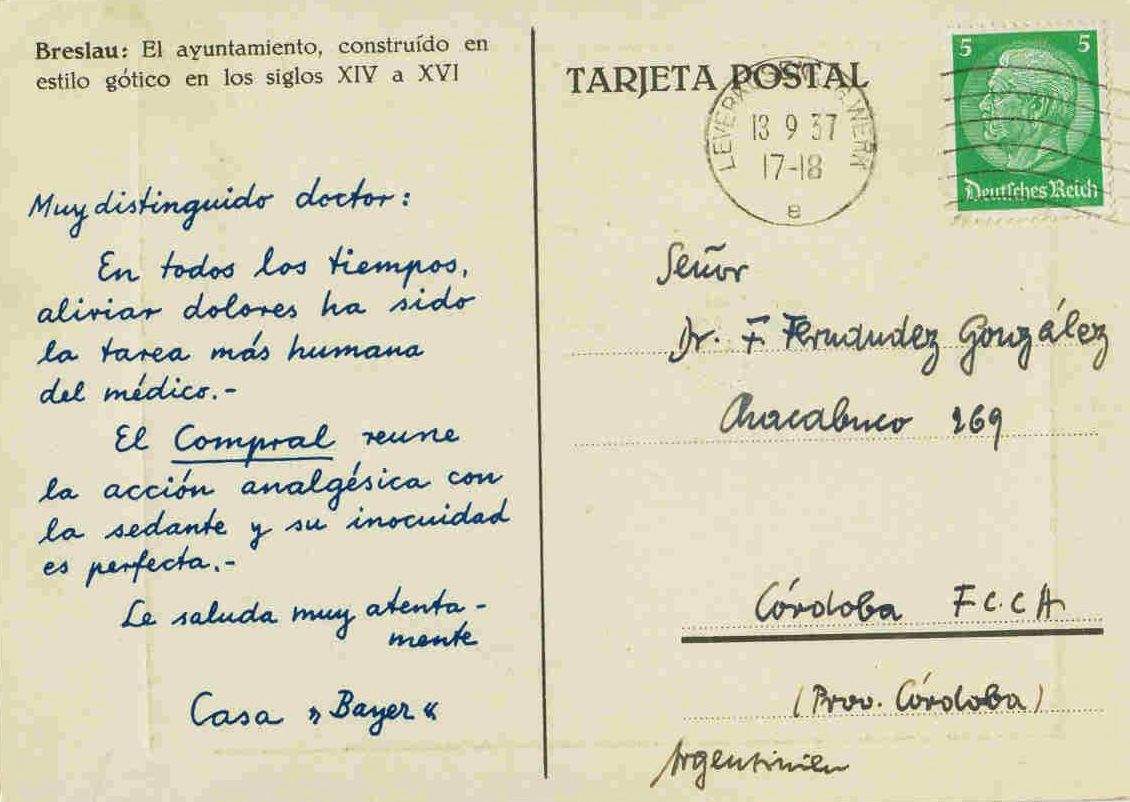 Breslau: El ayuntamiento, construído en
estilo gótico en los siglos XIV a XVI
Muy distinguido doctor:
En todos los tiempos,
aliviar dolores ha sido
la tarea más humana
del médico.-
El Compral reune
la acción analgésica con
la sedante y su inocuidad
es perfecta.-
Le saluda muy atenta-
mente
Casa "Bayer"
TARJETA POSTAL
13 9 37
17-18
e
5 5
Deutsches Reich
Señor
Dr. F. Fernandez González
Chacabuco 269
Córdoba F.C.C.A
(Prov. Córdoba)
Argentinien